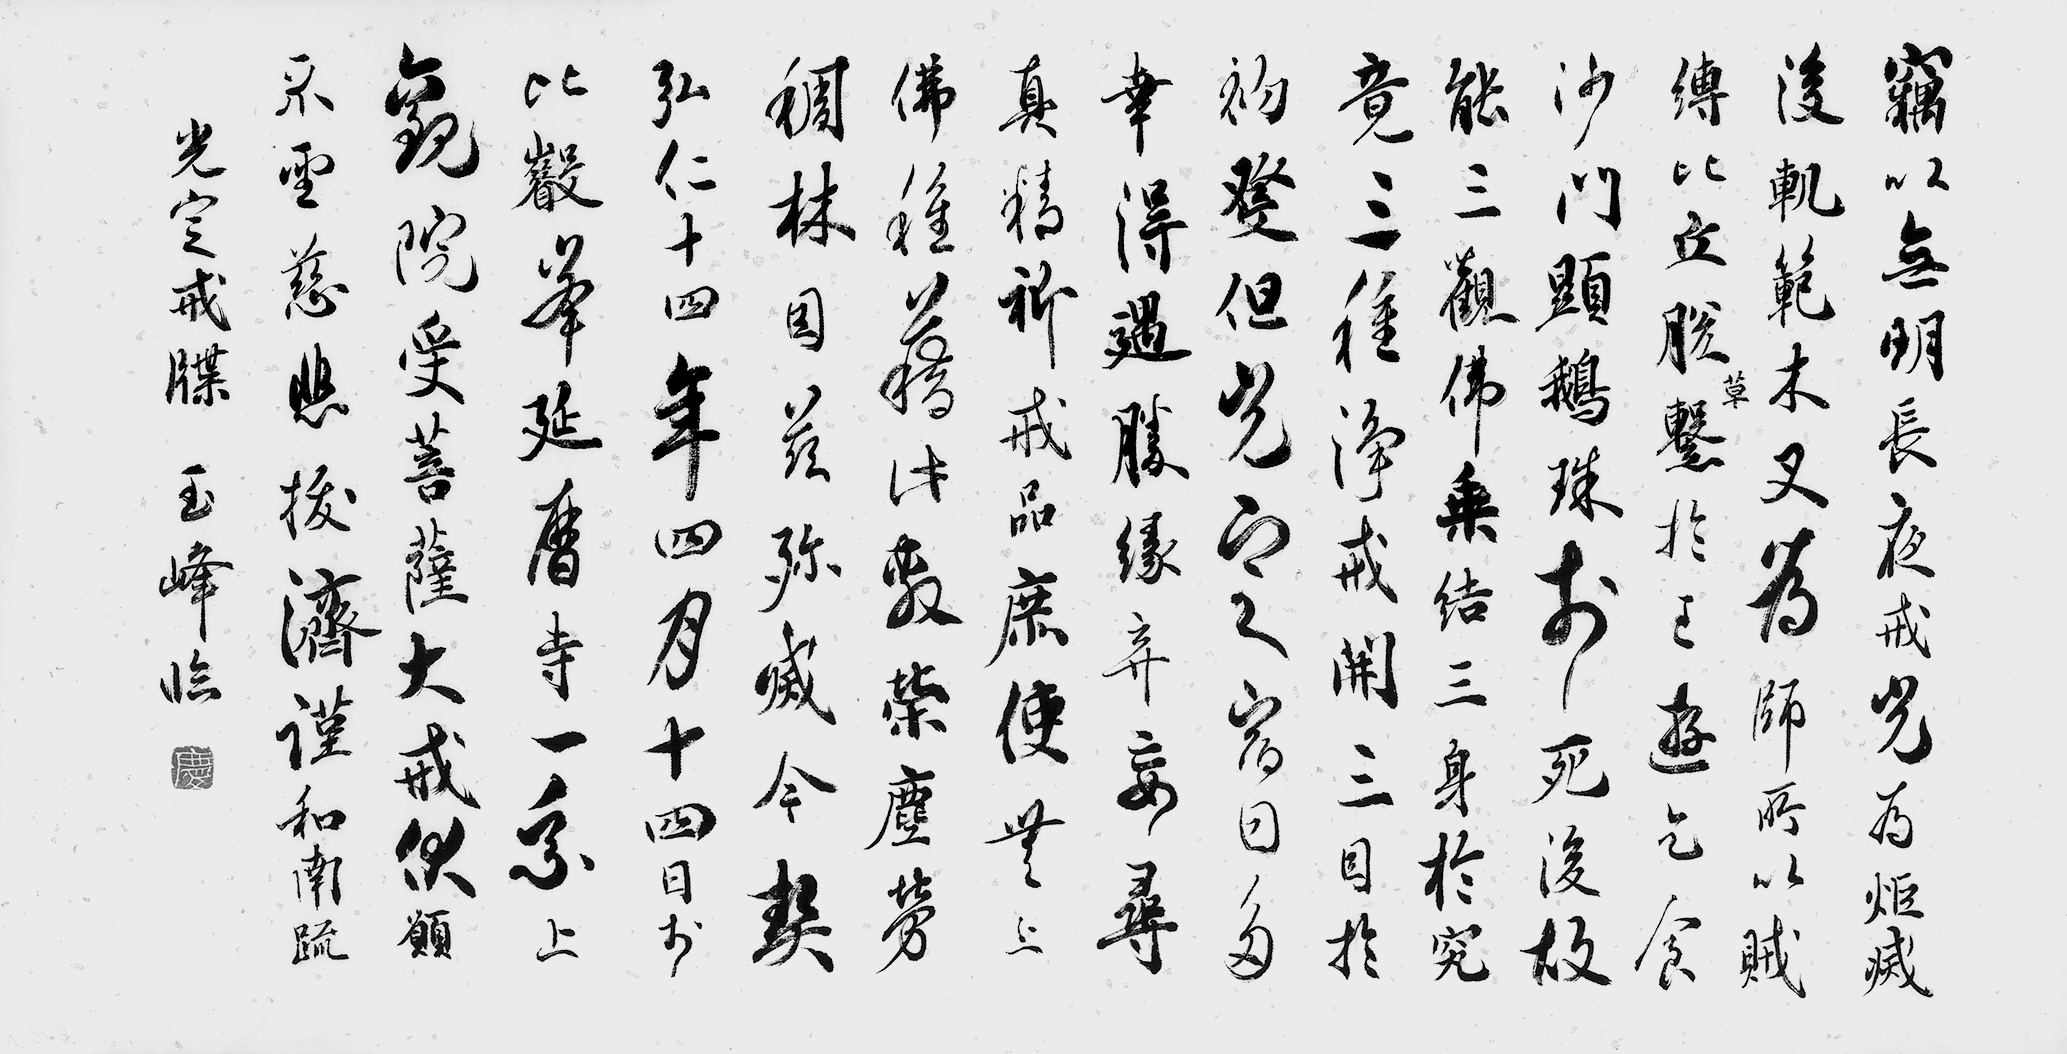 竊以無明長夜戒光為炬滅
後軌範木叉為師所以賊
縛比丘脫繫草於王遊乞食
沙門顯鵝珠於死後故
能三觀佛乘結三身於究
竟三種淨戒開三目於
初發但光定宿因多
幸得遇勝緣弃妄尋
真精祈戒品庶使無上
佛種藉此敷榮塵勞
稠林因茲殄滅今契
弘仁十四年四月十四日於
比叡峯延曆寺一乘上
觀院受菩薩大戒伏願
不墜慈悲拔濟謹和南疏
光定戒牒 玉峰臨
慶